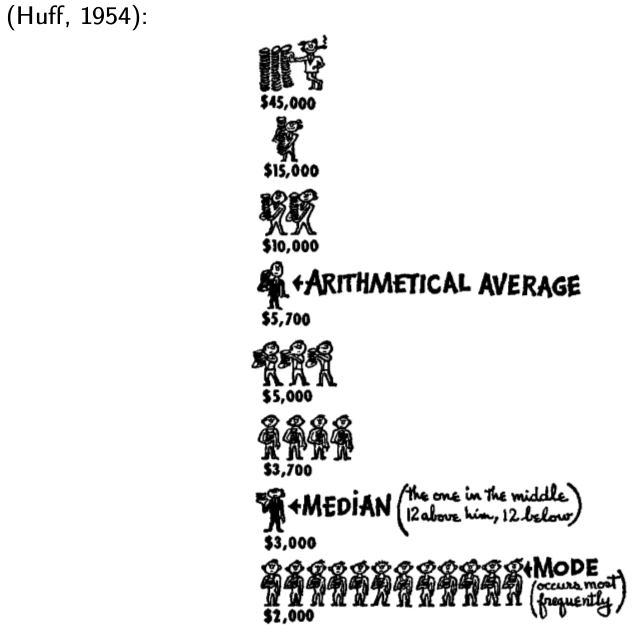 (Huff, 1954):
$45,000
$15,000
$10,000
←ARITHMETICAL AVERAGE
$5,700
$5,000
$3,700
←MEDIAN (the one in the middle
12 above him, 12 below)
$3,000
←MODE
(occurs most
frequently)
$2,000